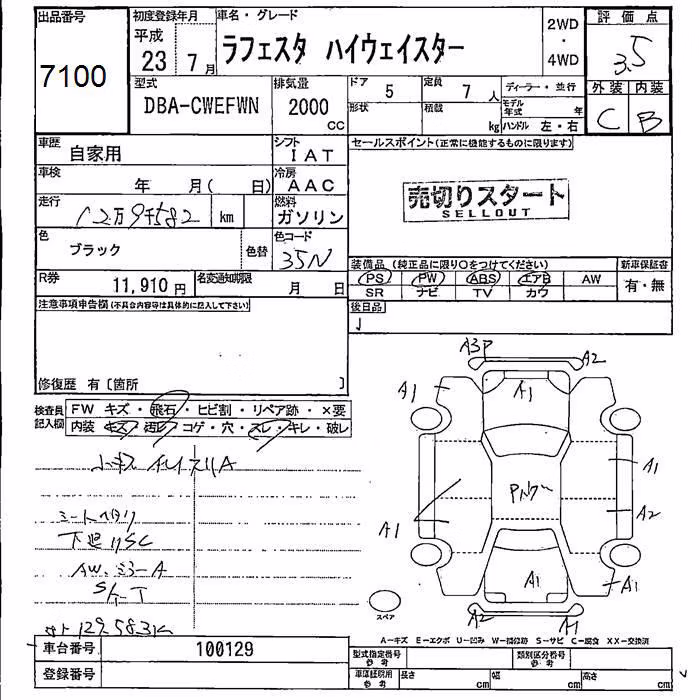 出品番号
7100
初度登録年月
平成
23年 7月
車名・グレード
ラフェスタ ハイウェイスター
2WD
・
4WD
評価点
3.5
外装 内装
C B
型式
DBA-CWEFWN
排気量
2000
cc
ドア
5
定員
7人
ディーラー・並行
形状
積載
kg
モデル年式 年
ハンドル 左・右
車歴
自家用
シフト
IAT
セールスポイント(正常に機能するものに限ります)
車検
年 月( 日)
冷房
AAC
売切りスタート
SELLOUT
走行
12万9千582 km
燃料
ガソリン
色
ブラック
色替
色コード
35N
装備品 (純正品に限り○をつけてください)
新車保証書
PS PW ABS エアB AW
有・無
SR ナビ TV カワ
R券
11,910円
名変通知期限
月 日
後日品
注意事項申告欄(不具合内容等は具体的に記入して下さい)
修復歴 有〔箇所 〕
検査員記入欄
FW キズ・飛石・ヒビ割・リペア跡・×要
内装 キズ・汚レ・コゲ・穴・スレ・キレ・破レ
シートヘタリ
下廻りSC
AW、ミラーA
A3P
A2
A1
A1
A1
A2
A1
A1
A1
A2
A1
スペア
A-キズ E-エクボ U-凹み W-補修跡 S-サビ C-腐食 XX-交換済
車台番号
100129
登録番号
型式指定番号
参考
類別区分番号
参考
車庫証明用
参考
長さ cm
幅 cm
高さ cm